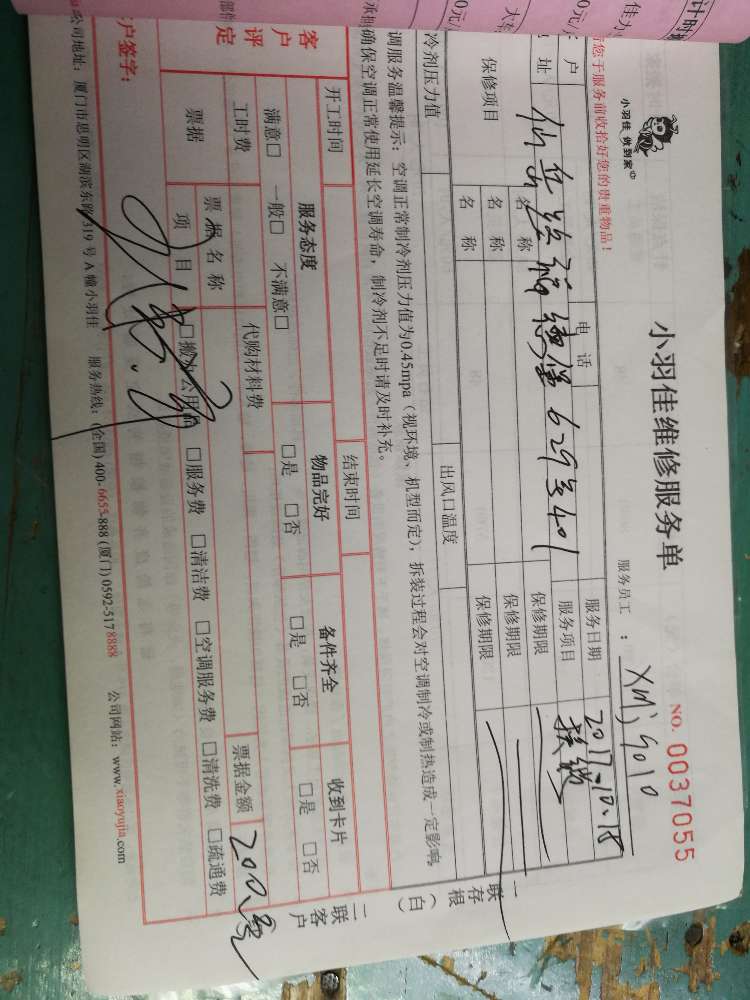 小羽佳 做到家
小羽佳维修服务单
NO. 0037055
服务员工 ： XMJ9010
您于服务前收拾好您的贵重物品！
户
电 话
服务日期
2017.10.18
址
仙岳路福德堡629号401
服务项目
保修项目
名 称
保修期限
名 称
保修期限
名 称
保修期限
冷剂压力值
出风口温度
调服务温馨提示：空调正常制冷剂压力值为0.45mpa（视环境、机型而定），拆装过程会对空调制冷或制热造成一定影响，
确保空调正常使用延长空调寿命，制冷剂不足时请及时补充。
开工时间
结束时间
客户评定
服务态度
物品完好
备件齐全
收到卡片
满意□ 一般□ 不满意□
□是 □否
□是 □否
□是 □否
工时费
代购材料费
票据金额
200
票据
票据名称
项 目
□搬办公用品 □服务费 □清洁费 □空调服务费 □清洗费 □疏通费
户签字：
公司地址：厦门市思明区湖滨东路319号A幢小羽佳 服务热线：(全国) 400-6655-888 (厦门) 0592-5178888 公司网站：www.xiaoyujia.com
一联存根（白）
二联客户